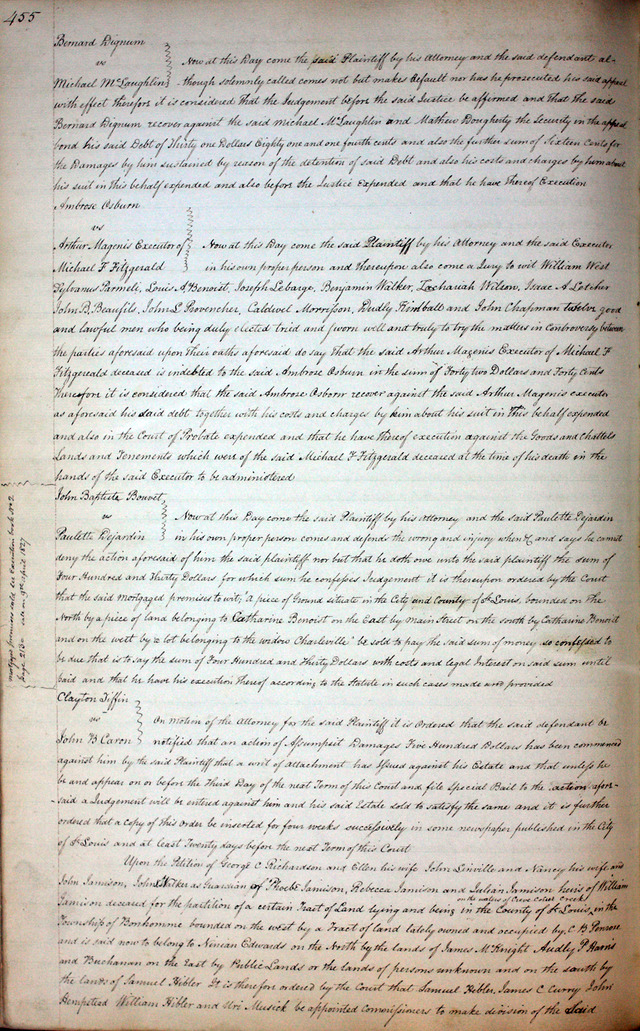 455
Bernard Dignum
vs
Michael McLaughlin
Now at this Day come the said Plaintiff by his Attorney and the said defendant al-
though solemnly called comes not but makes default nor has he prosecuted his said appeal
with effect therefore it is considered that the Judgement before the said Justice be affermed and that the said
Bernard Dignum recover against the said Michael McLaughlin and Mathew Dougherty the Security in the appeal
bond his said Debt of Thirty one Dollars Eighty one and one fourth cents and also the further sum of Sixteen Cents for
the Damages by him sustained by reason of the detention of said Debt and also his costs and charges by him about
his suit in this behalf expended and also before the Justice Expended and that he have thereof Execution
Ambrose Osburn
vs
Arthur Magenis Executor of
Michael F Fitzgerald
Now at this Day come the said Plaintiff by his Attorney and the said Executor
in his own proper person and thereupon also come a Jury to wit William West
Sylvanus Parmeli, Louis A Benoist, Joseph Lebarge, Benjamin Walker, Zechariah Wilson, Isaac A Letcher
John B. Beaufils, John L Provencher, Caldwel Morrison, Dudly Kimball and John Chapman twelve good
and lawful men who being duly elected tried and sworn well and truly to try the matters in Controversy between
the parties aforesaid upon their oaths aforesaid do say that the said Arthur Magenis Executor of Michael F
Fitzgerald deceased is indebted to the said Ambrose Osburn in the sum of Forty two Dollars and Forty Cents
Therefore it is considered that the said Ambrose Osborn recover against the said Arthur Magenis executor
as aforesaid his said debt together with his costs and charges by him about his suit in this behalf expended
and also in the Court of Probate expended and that he have thereof execution against the Goods and Chattels
Lands and Tenements which were of the said Michael F Fitzgerald deceased at the time of his death in the
hands of the said Executor to be administered
John Baptiste Bouvet
vs
Paulette Dejardin
Now at this Day come the said Plaintiff by his Attorney and the said Paulette Dejardin
in his own proper person comes and defends the wrong and injury when &c and says he cannot
deny the action aforesaid of him the said plaintiff nor but that he doth owe unto the said plaintiff the sum of
Four Hundred and Thirty Dollars for which sum he confesses Judgement it is thereupon ordered by the Court
that the said mortgaged premises to wit; a piece of Ground situate in the City and County of St Louis, bounded on the
North by a piece of land belonging to Catharine Benoist on the East by Main Street on the south by Catharine Benoist
and on the west by a lot belonging to the widow Charleville be sold to pay the said sum of money so confessed to
be due that is to say the sum of Four Hundred and Thirty Dollars with costs and legal Interest on said sum until
paid and that he have his execution thereof according to the Statute in such cases made and provided
mortgaged premises sale see Execution book No 2
page 213 april 1827
Clayton Tiffin
vs
John B Caron
On motion of the Attorney for the said Plaintiff it is Ordered that the said defendant be
notified that an action of Assumpsit Damages Five Hundred Dollars has been commenced
against him by the said Plaintiff that a writ of attachment has Issued against his Estate and that unless he
be and appear on or before the Third Day of the next Term of this Court and file Special Bail to the action afore-
said a Judgement will be entered against him and his said Estate sold to satisfy the same and it is further
ordered that a copy of this order be inserted for four weeks successively in some newspaper published in the City
of St Louis and at least Twenty days before the next Term of this Court
Upon the Petition of George C Richardson and Ellen his wife John Linville and Nancy his wife and
John Jamison, John Wilker as Guardian of Phoebe Jamison, Rebecca Jamison and Julian Jamison heirs of William
Jamison deceased for the partition of a certain Tract of Land lying and being on the waters of Creek in the County of St Louis, in the
Township of Bonhomme bounded on the west by a Tract of land lately owned and occupied by C B Penrose
and is said now to belong to Ninean Edwards on the North by the lands of James McKnight Audly P Harris
and Buchanan on the East by Public Lands or the lands of persons unknown and on the south by
the lands of Samuel Hibler It is therefore ordered by the Court that Samuel Hibler, James C Curry John
Hempstead William Hibler and Uri Musick be appointed commissioners to make division of the said